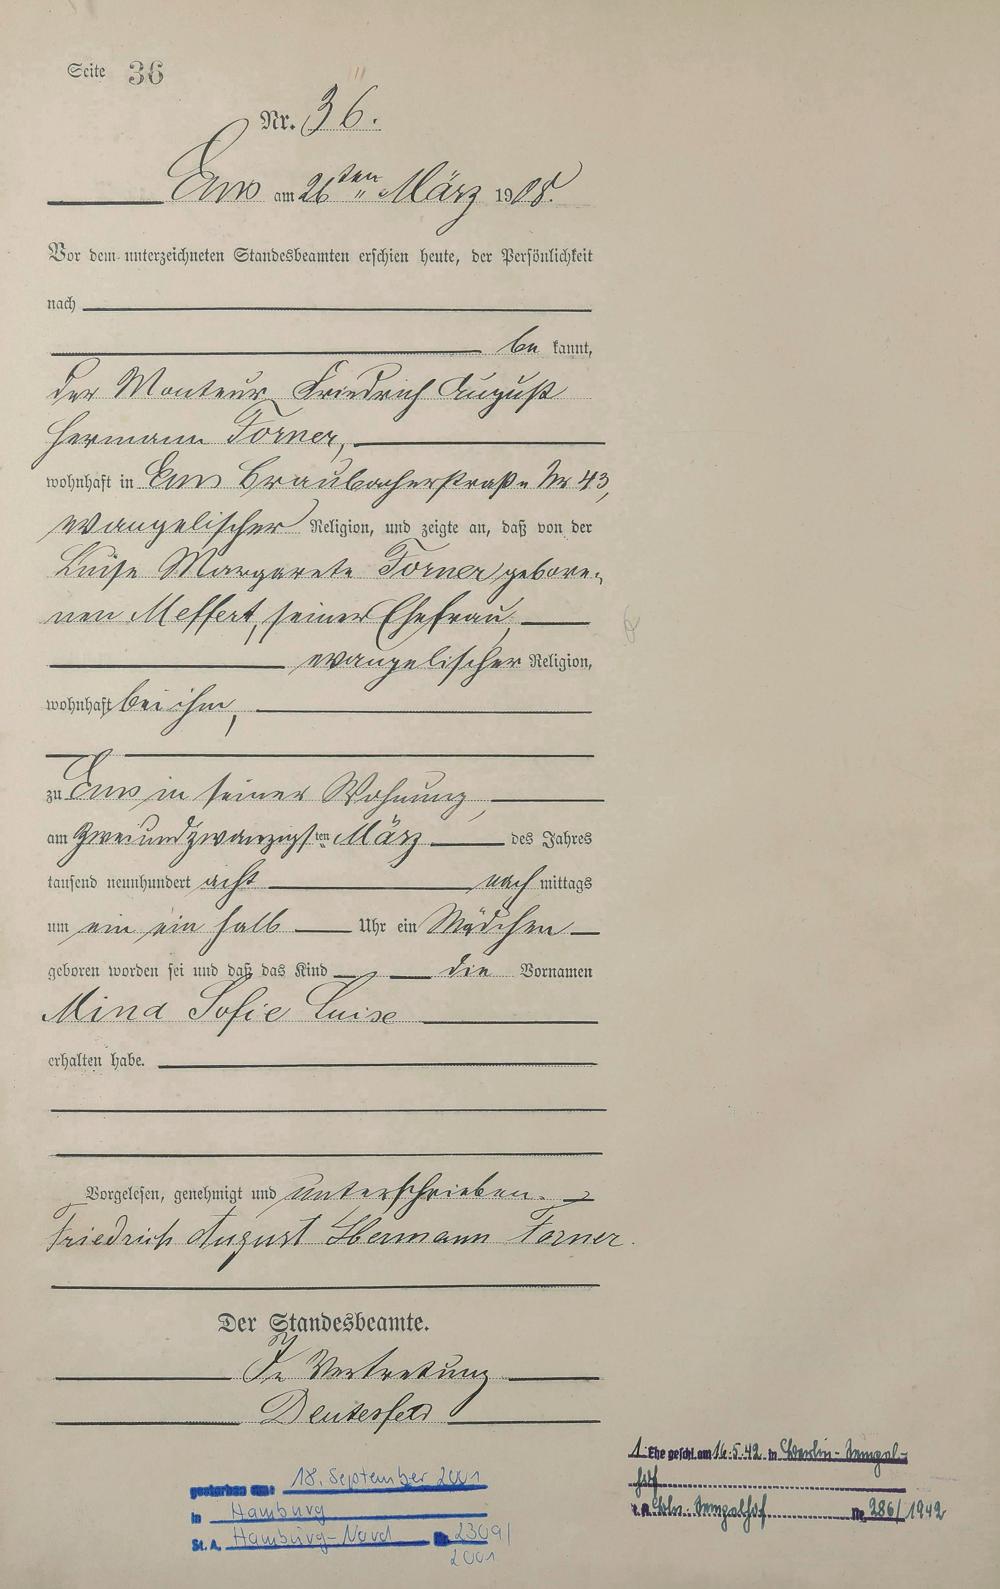 Seite 36
Nr. 36.
Ems am 26ten März 1908.
Vor dem unterzeichneten Standesbeamten erschien heute, der Persönlichkeit
nach
be kannt,
der Monteur Friedrich August
Hermann Forner,
wohnhaft in Ems Braubacherstraße Nr 43,
evangelischer Religion, und zeigte an, daß von der
Luise Margarete Forner gebore-
nen Meffert, seiner Ehefrau,
evangelischer Religion,
wohnhaft bei ihm,
zu Ems in seiner Wohnung,
am zweiundzwanzigsten März des Jahres
tausend neunhundert acht nach mittags
um ein ein halb Uhr ein Mädchen
geboren worden sei und daß das Kind die Vornamen
Mina Sofie Luise
erhalten habe.
Vorgelesen, genehmigt und unterschrieben.
Friedrich August Hermann Forner.
Der Standesbeamte.
In Vertretung
1. Ehe geschl. am 16.5.42 in Berlin-Tempel-
hof
Bln.-Tempelhof Nr. 286/1942
gestorben am: 18. September 2001
in Hamburg
St. A. Hamburg-Nord Nr. 2309/
2001